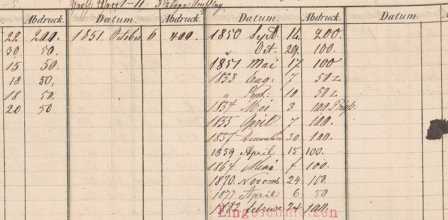 Abdruck. Datum. Abdruck Datum. Abdruck. Datum.
22 200. 1851 October 6 400. 1850 Sept. 14 200.
30 50. " Oct. 29 100.
15 50. 1851 Mai 17 100
18 50. 1853 Aug. 7 50
18 50. " Sept. 10 50
20 50 1854 Mai 3 100
1855 April 7 100.
1857 December 30 100.
1859 April 15 100.
1864 Mai 7 100.
1870 Novemb 24 150.
1877 April 6 50
1882 Februar 24 150